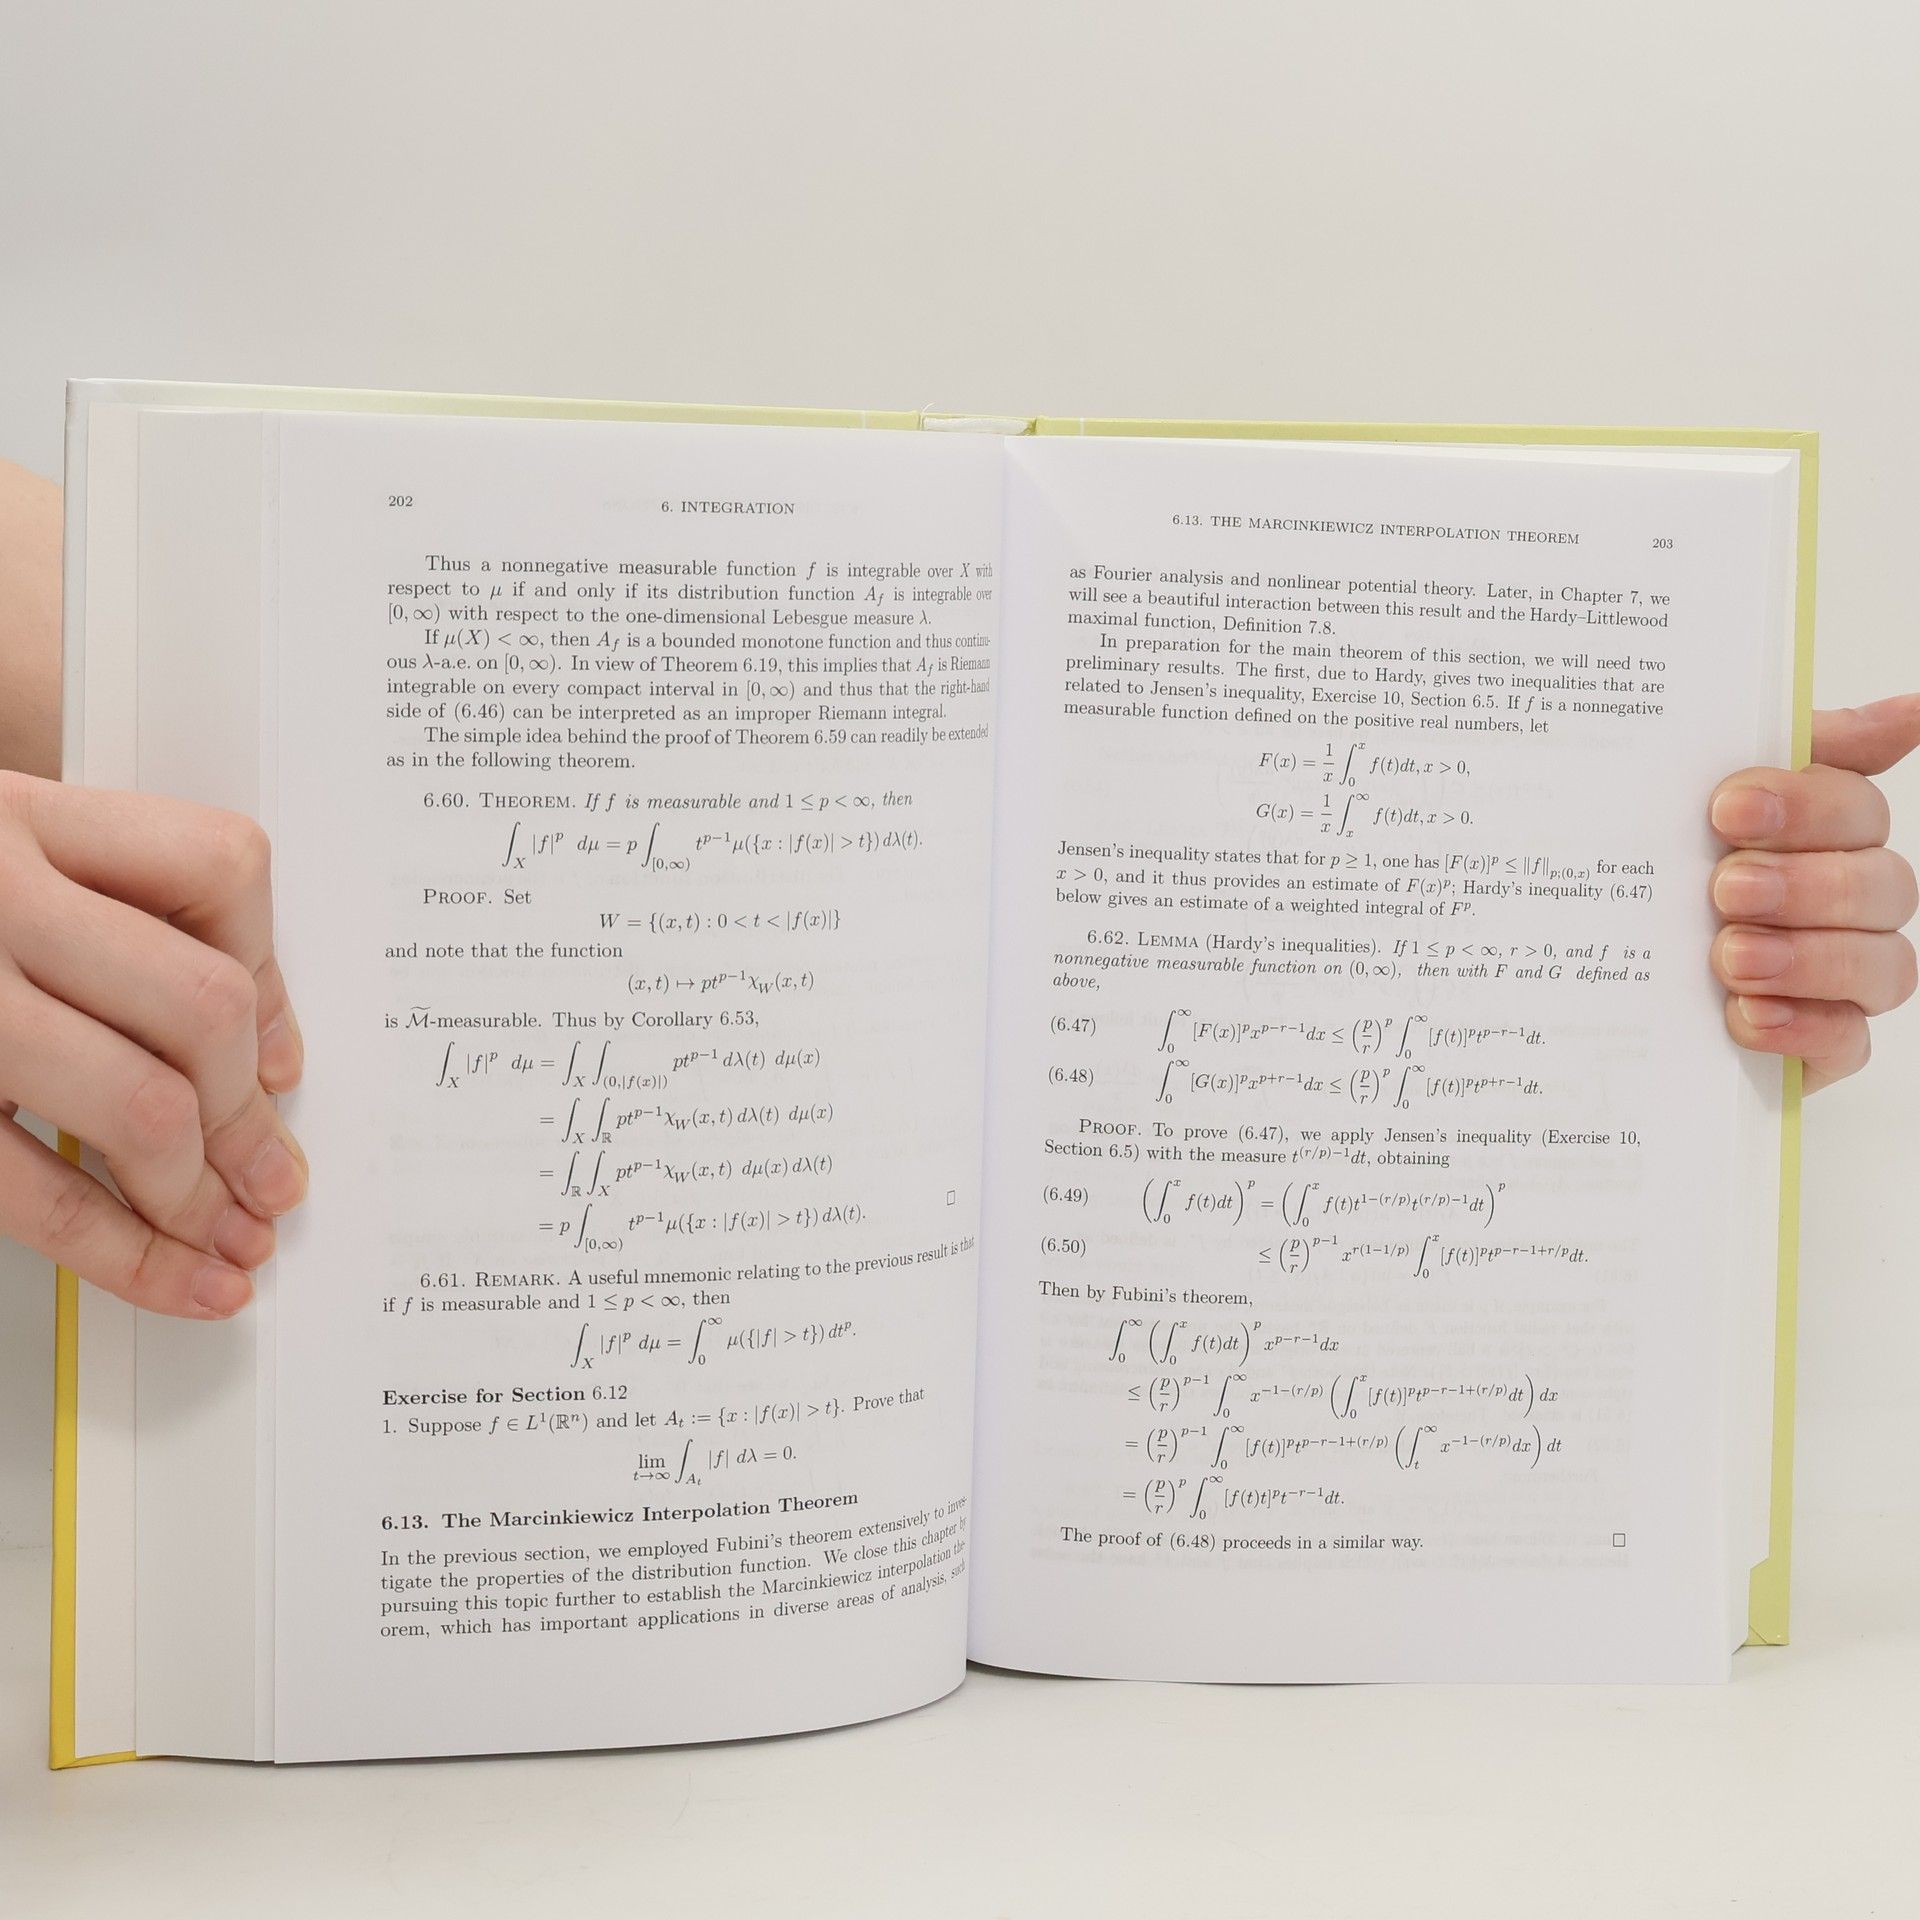 202
6. INTEGRATION
Thus a nonnegative measurable function f is integrable over X with
respect to μ if and only if its distribution function A_f is integrable over
[0, ∞) with respect to the one-dimensional Lebesgue measure λ.
If μ(X) < ∞, then A_f is a bounded monotone function and thus continu-
ous λ-a.e. on [0, ∞). In view of Theorem 6.19, this implies that A_f is Riemann
integrable on every compact interval in [0, ∞) and thus that the right-hand
side of (6.46) can be interpreted as an improper Riemann integral.
The simple idea behind the proof of Theorem 6.59 can readily be extended
as in the following theorem.
6.60. THEOREM. If f is measurable and 1 ≤ p < ∞, then
∫_X |f|^p dμ = p ∫_{[0,∞)} t^{p−1} μ({x : |f(x)| > t}) dλ(t).
PROOF. Set
W = {(x, t) : 0 < t < |f(x)|}
and note that the function
(x, t) ↦ pt^{p−1} χ_W(x, t)
is M̃-measurable. Thus by Corollary 6.53,
∫_X |f|^p dμ = ∫_X ∫_{(0,|f(x)|)} pt^{p−1} dλ(t) dμ(x)
= ∫_X ∫_ℝ pt^{p−1} χ_W(x, t) dλ(t) dμ(x)
= ∫_ℝ ∫_X pt^{p−1} χ_W(x, t) dμ(x) dλ(t)
= p ∫_{[0,∞)} t^{p−1} μ({x : |f(x)| > t}) dλ(t). □
6.61. REMARK. A useful mnemonic relating to the previous result is that
if f is measurable and 1 ≤ p < ∞, then
∫_X |f|^p dμ = ∫_0^∞ μ({|f| > t}) dt^p.
Exercise for Section 6.12
1. Suppose f ∈ L^1(ℝ^n) and let A_t := {x : |f(x)| > t}. Prove that
lim_{t→∞} ∫_{A_t} |f| dλ = 0.
6.13. The Marcinkiewicz Interpolation Theorem
In the previous section, we employed Fubini's theorem extensively to inves-
tigate the properties of the distribution function. We close this chapter by
pursuing this topic further to establish the Marcinkiewicz interpolation the-
orem, which has important applications in diverse areas of analysis, such
6.13. THE MARCINKIEWICZ INTERPOLATION THEOREM
203
as Fourier analysis and nonlinear potential theory. Later, in Chapter 7, we
will see a beautiful interaction between this result and the Hardy–Littlewood
maximal function, Definition 7.8.
In preparation for the main theorem of this section, we will need two
preliminary results. The first, due to Hardy, gives two inequalities that are
related to Jensen's inequality, Exercise 10, Section 6.5. If f is a nonnegative
measurable function defined on the positive real numbers, let
F(x) = 1/x ∫_0^x f(t)dt, x > 0,
G(x) = 1/x ∫_x^∞ f(t)dt, x > 0.
Jensen's inequality states that for p ≥ 1, one has [F(x)]^p ≤ ‖f‖_{p;(0,x)} for each
x > 0, and it thus provides an estimate of F(x)^p; Hardy's inequality (6.47)
below gives an estimate of a weighted integral of F^p.
6.62. LEMMA (Hardy's inequalities). If 1 ≤ p < ∞, r > 0, and f is a
nonnegative measurable function on (0, ∞), then with F and G defined as
above,
(6.47) ∫_0^∞ [F(x)]^p x^{p−r−1} dx ≤ (p/r)^p ∫_0^∞ [f(t)]^p t^{p−r−1} dt.
(6.48) ∫_0^∞ [G(x)]^p x^{p+r−1} dx ≤ (p/r)^p ∫_0^∞ [f(t)]^p t^{p+r−1} dt.
PROOF. To prove (6.47), we apply Jensen's inequality (Exercise 10,
Section 6.5) with the measure t^{(r/p)−1} dt, obtaining
(6.49) (∫_0^x f(t)dt)^p = (∫_0^x f(t)t^{1−(r/p)} t^{(r/p)−1} dt)^p
(6.50) ≤ (p/r)^{p−1} x^{r(1−1/p)} ∫_0^x [f(t)]^p t^{p−r−1+r/p} dt.
Then by Fubini's theorem,
∫_0^∞ (∫_0^x f(t)dt)^p x^{p−r−1} dx
≤ (p/r)^{p−1} ∫_0^∞ x^{−1−(r/p)} (∫_0^x [f(t)]^p t^{p−r−1+(r/p)} dt) dx
= (p/r)^{p−1} ∫_0^∞ [f(t)]^p t^{p−r−1+(r/p)} (∫_t^∞ x^{−1−(r/p)} dx) dt
= (p/r)^p ∫_0^∞ [f(t)t]^p t^{−r−1} dt.
The proof of (6.48) proceeds in a similar way. □